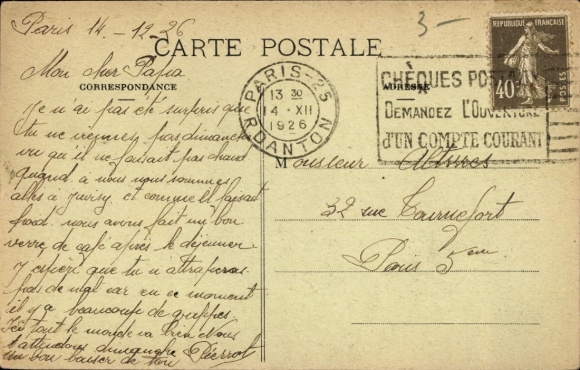 Paris 14-12-26
3-
CARTE POSTALE
CORRESPONDANCE
ADRESSE
RÉPUBLIQUE FRANÇAISE
40c
POSTES
PARIS-25
13 30
14 • XII
1926
R. DANTON
CHÈQUES POSTAUX
DEMANDEZ L'OUVERTURE
D'UN COMPTE COURANT
Mon cher Papa
Je n'ai pas été surpris que
tu ne viennes pas dimanche
vu qu'il ne faisait pas chaud
quand à nous nous sommes
allés à Juvisy et comme il faisait
froid nous avons fait un bon
verre de café après le déjeuner
J'espère que tu n'attraperas
pas de mal car en ce moment
il y a beaucoup de grippes.
Ici tout le monde va bien Nous
t'attendons dimanche
un bon baiser de ton Pierrot
Monsieur
32 rue Tournefort
Paris 5eme